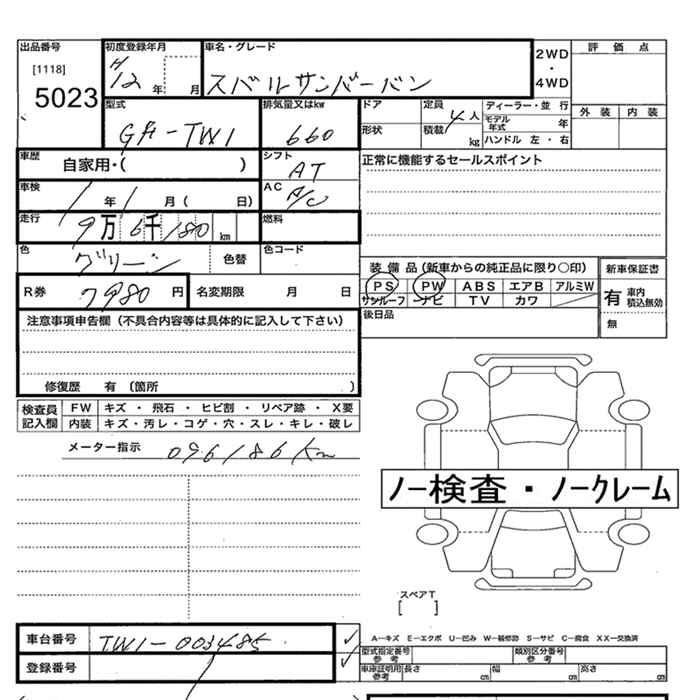 出品番号 初度登録年月 車名・グレード 2WD・4WD 評価点
[1118] 5023 H12年 月 スバルサンバーバン
型式 排気量又はkw ドア 定員 4人 ディーラー・並行 外装 内装
モデル年式 年
GA-TW1 660 形状 積載 kg ハンドル 左・右
車歴 自家用・( ) シフト AT 正常に機能するセールスポイント
車検 1年1月( 日) AC A/C
走行 9万6千180km 燃料
色 グリーン 色替 色コード
装備品(新車からの純正品に限り○印) 新車保証書
R券 7980円 名変期限 月 日 PS PW ABS エアB アルミW 有 車内積込無効
サンルーフ ナビ TV カワ
注意事項申告欄(不具合内容等は具体的に記入して下さい) 後日品 無
修復歴 有(箇所 )
検査員記入欄 FW キズ・飛石・ヒビ割・リペア跡・X要
内装 キズ・汚レ・コゲ・穴・スレ・キレ・破レ
メーター指示 096186Km
ノー検査・ノークレーム
スペアT
[ ]
車台番号 TW1-003485 ✓
A－キズ E－エクボ U－凹み W－補修跡 S－サビ C－腐食 XX－交換済
型式指定番号 参考 類別区分番号 参考
登録番号 ✓ 車庫証明用 参考 長さ cm 幅 cm 高さ cm